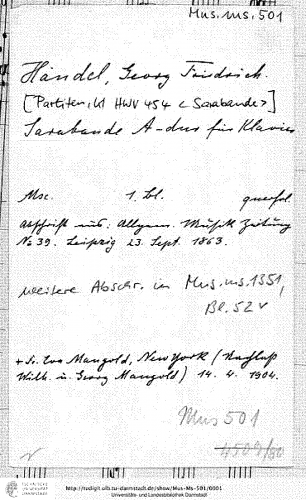 Mus.ms.501
Händel, Georg Friedrich.
[Partiten, Kl HWV 454 <Sarabande>]
Sarabande A-dur für Klavier
Msc. 1. Bl. querfol.
Abschrift aus: Allgem. Musik Zeitung
No 39. Leipzig 23. Sept. 1863.
weitere Abschr. in Mus.ms.1351,
Bl. 52 v
Mangold, New York (Nachlaß
Wilh. u. Georg Mangold) 14. 4. 1904.
Mus 501
4509/80
http://tudigit.ulb.tu-darmstadt.de/show/Mus-Ms-501/0001
Universitäts- und Landesbibliothek Darmstadt